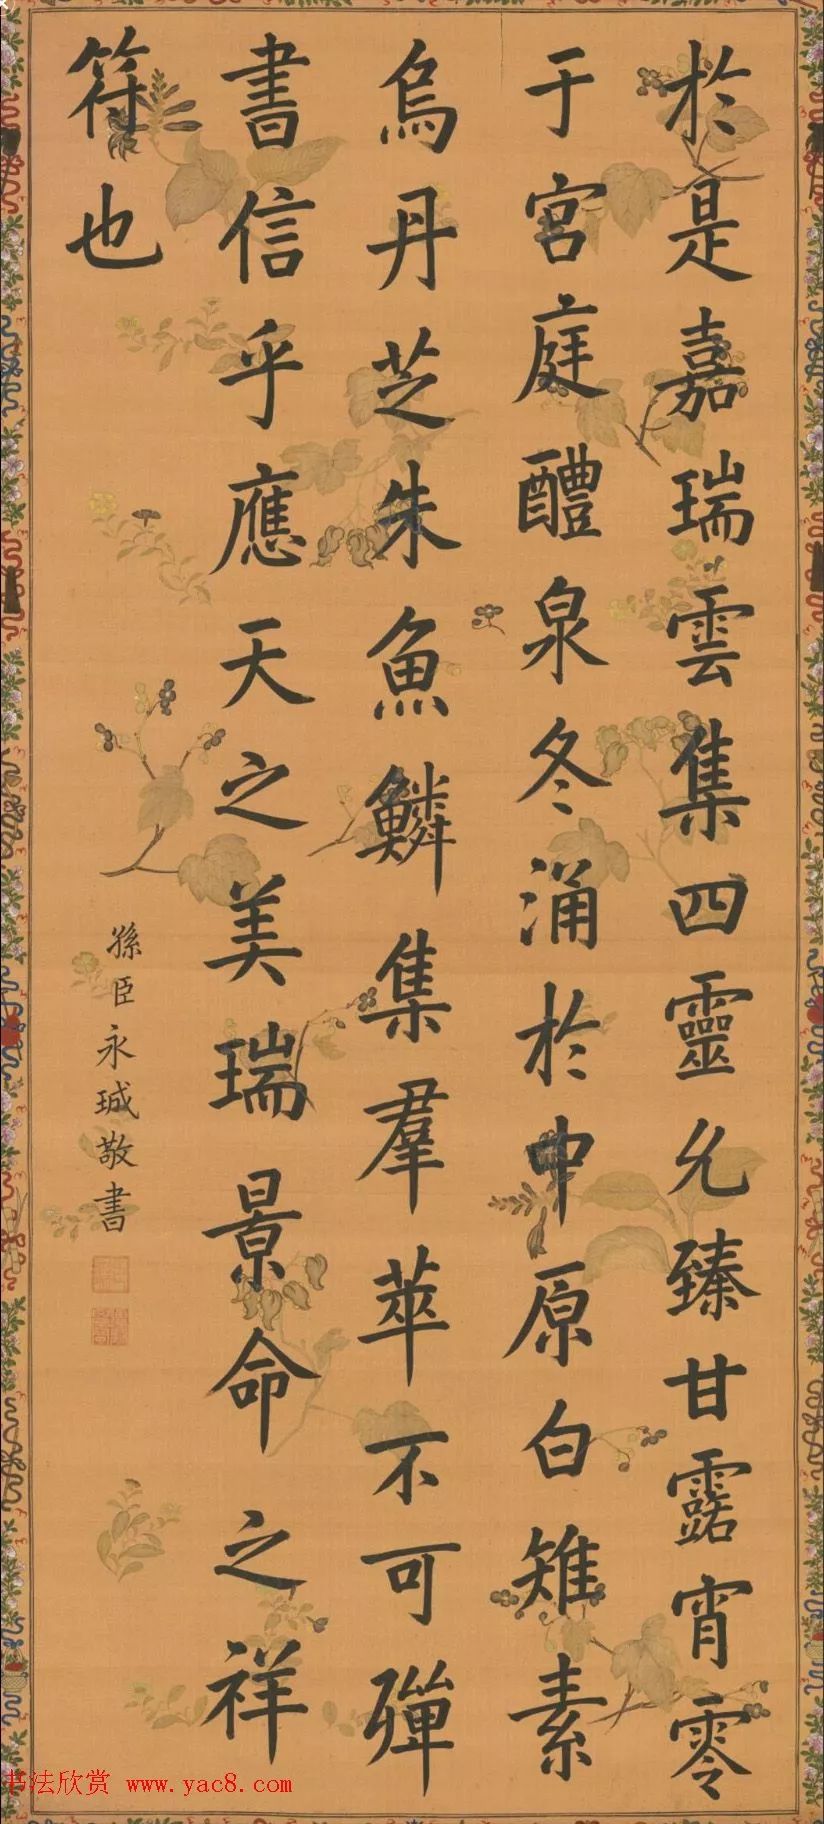 於是嘉瑞雲集四靈允臻甘露宵零
于宮庭醴泉冬涌於中原白雉素
烏丹芝朱魚鱗集羣萃不可殫
書信乎應天之美瑞景命之祥
符也
孫臣永珹敬書
书法欣赏 www.yac8.com